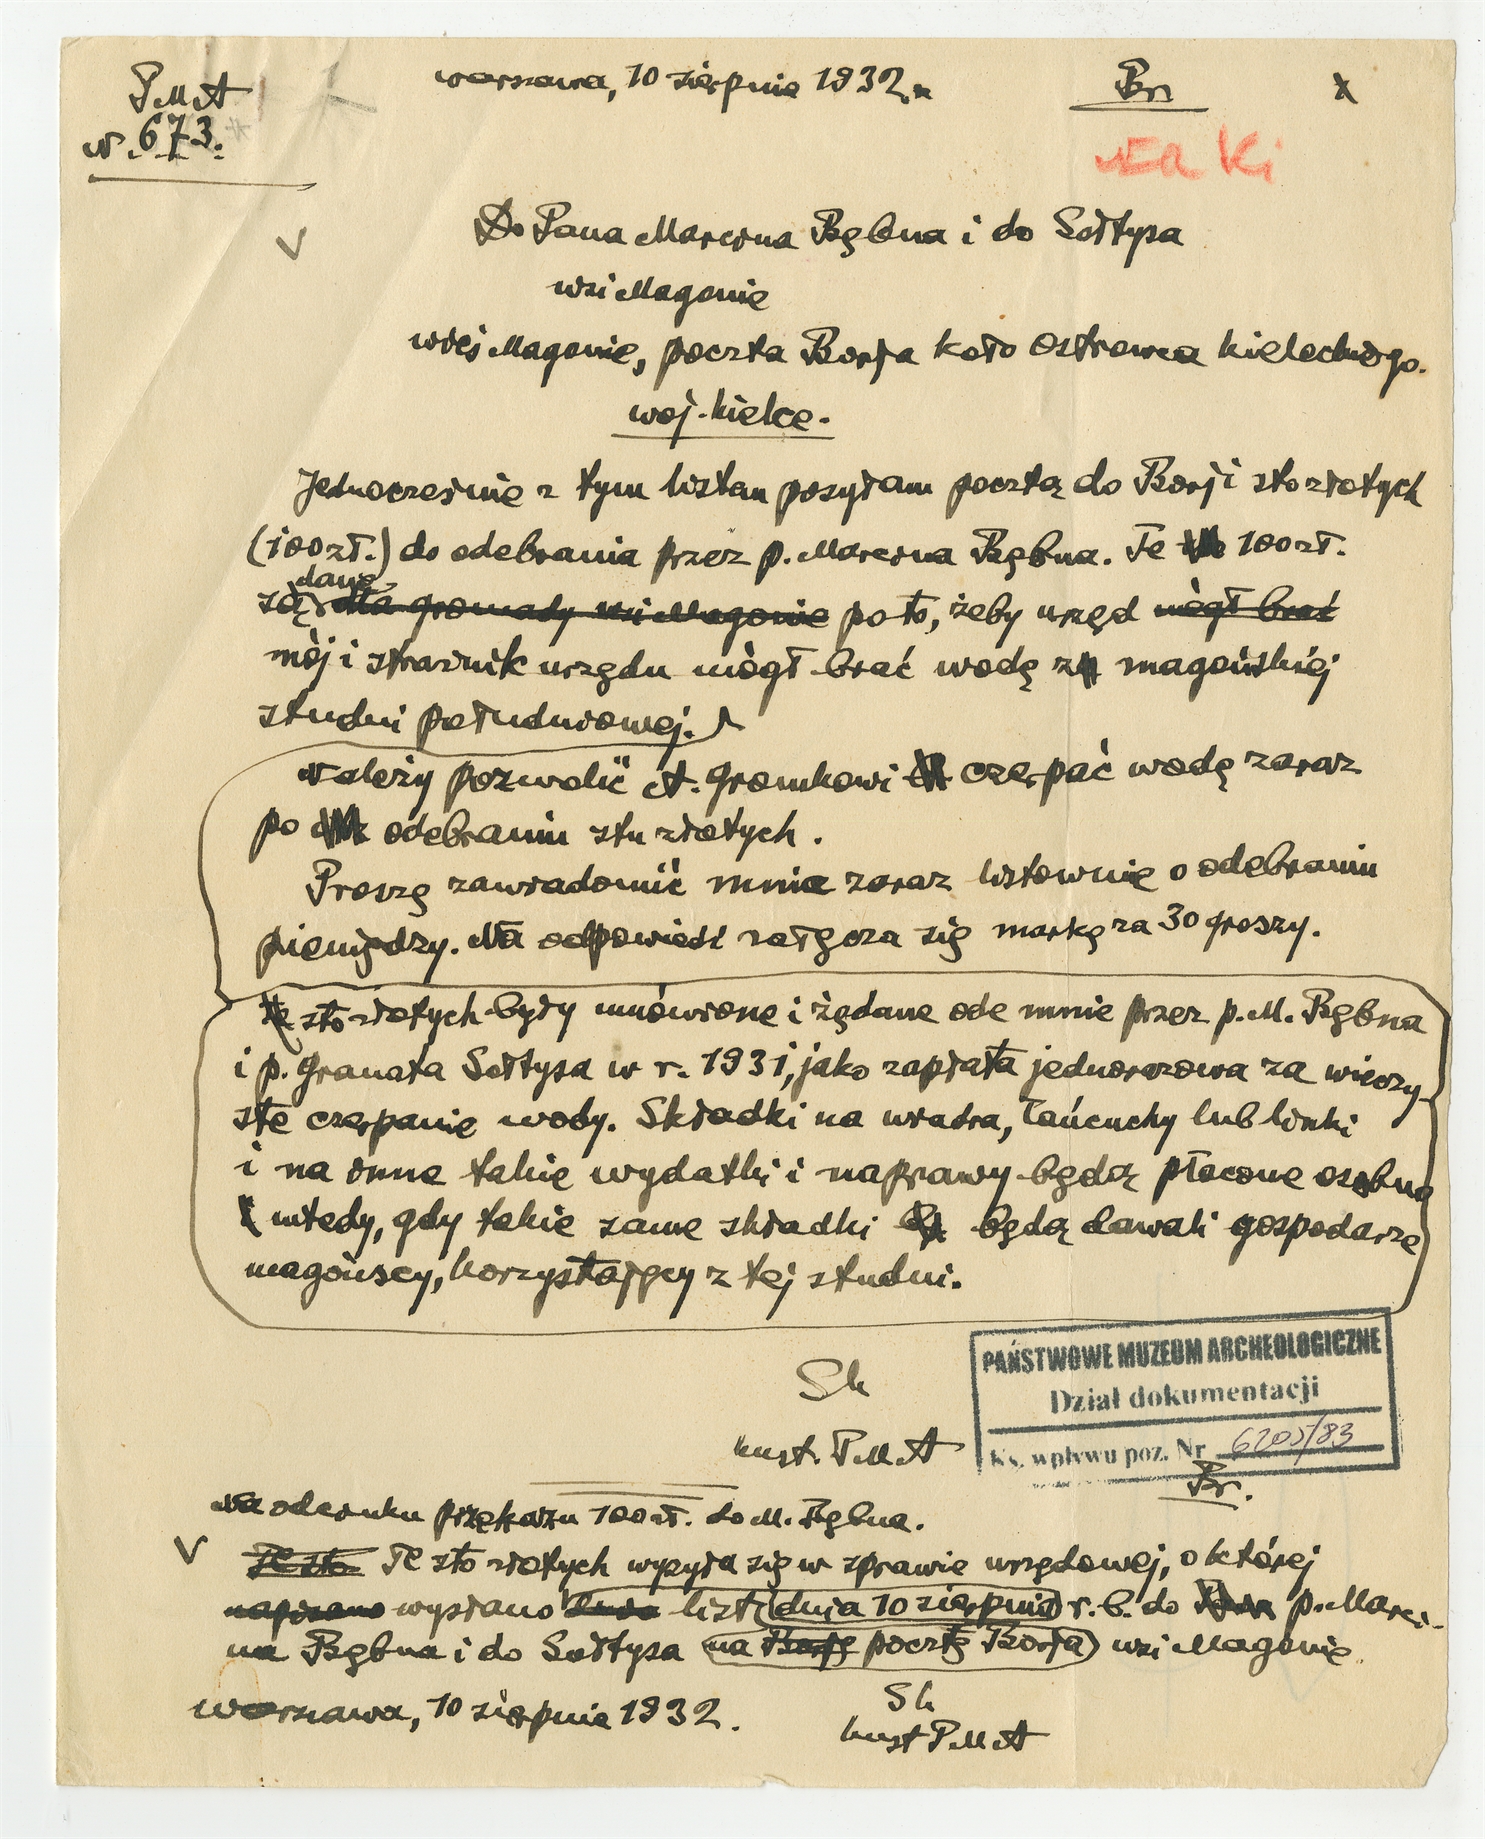 PMA
N. 673.
Warszawa, 10 sierpnia 1932 r.
Br.
Do Pana Marcina Bębna i do Sołtysa
wsi Magonie
wieś Magonie, poczta Borja koło Ostrowca Kieleckiego.
woj. kielce.
Jednocześnie z tym listem posyłam pocztą do Borji sto złotych
(100 zł.) do odebrania przez p. Marcina Bębna. Te 100 zł.
są dane dla gromady wsi Magonie po to, żeby urząd mógł brać
mój i strażnik urzędu mógł brać wodę z magońskiej
studni południowej.
Należy pozwolić A. Gromkowi czerpać wodę zaraz
po odebraniu stu złotych.
Proszę zawiadomić mnie zaraz listownie o odebraniu
pieniędzy. Na odpowiedź załącza się markę za 30 groszy.
Te sto złotych były umówione i żądane ode mnie przez p. M. Bębna
i p. Granata Sołtysa w r. 1931, jako zapłata jednorazowa za wieczy-
ste czerpanie wody. Składki na wiadra, łańcuchy lub linki
i na inne takie wydatki i naprawy będą płacone osobno
wtedy, gdy takie same składki będą dawali gospodarze
magońscy, korzystający z tej studni.
Sk
kust. PMA
PAŃSTWOWE MUZEUM ARCHEOLOGICZNE
Dział dokumentacji
Ks. wpływu poz. Nr 6205/83
Br.
Na odcinku przekazu 100 zł. do M. Bębna.
Te sto Te sto złotych wysyła się w sprawie urzędowej, o której
napisano wysłano list (dnia 10 sierpnia) r. b. do p. Marci-
na Bębna i do Sołtysa (na Borję pocztę Borja) wsi Magonie
Warszawa, 10 sierpnia 1932.
Sk
kust PMA